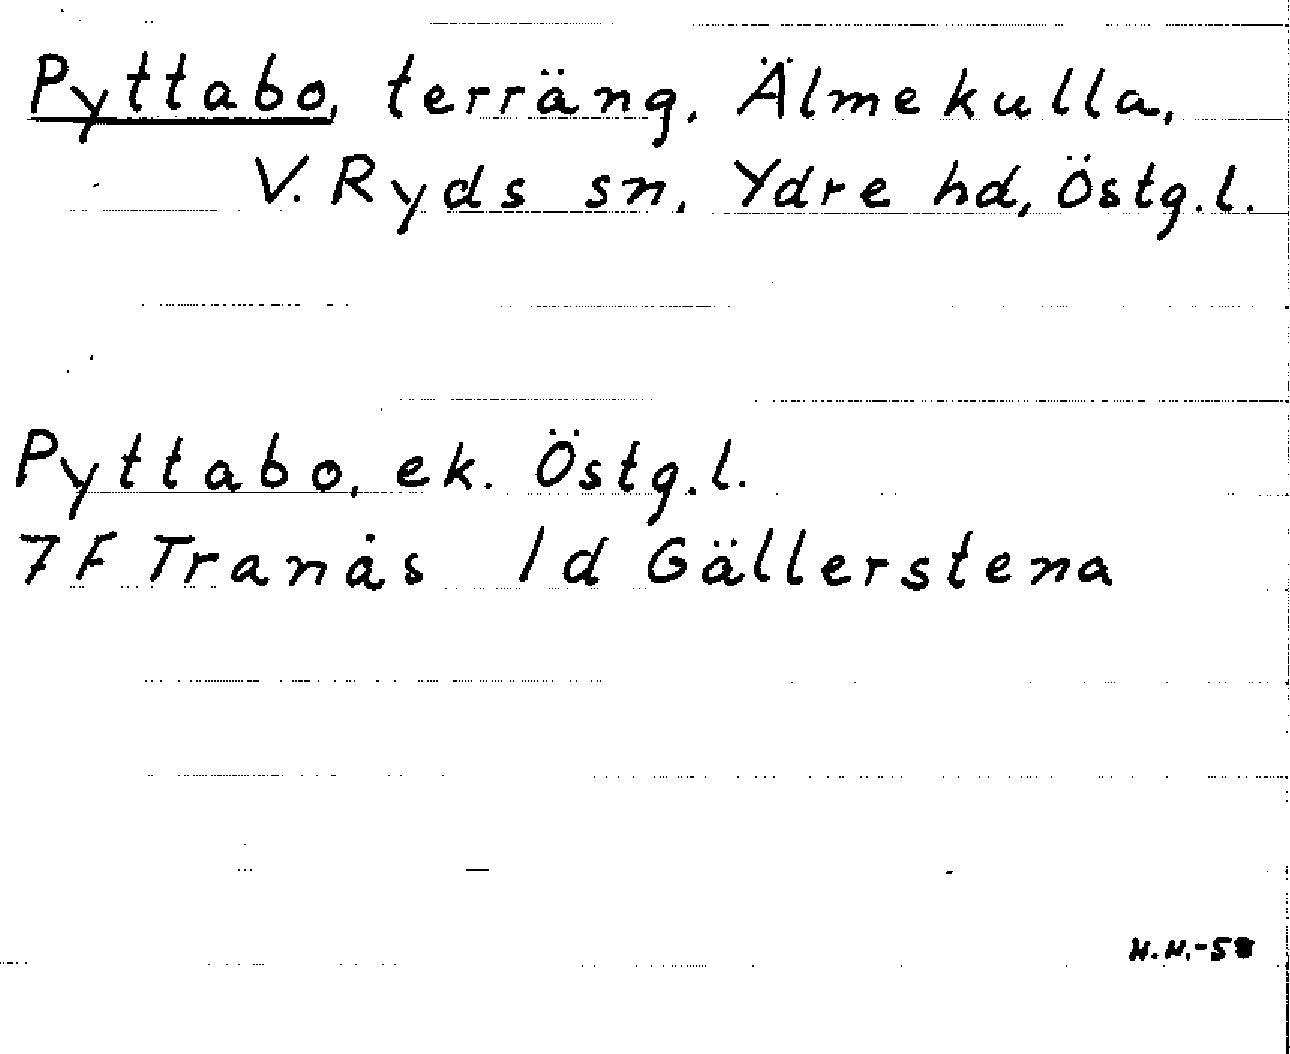 Pyttabo, terräng, Älmekulla,
V. Ryds sn, Ydre hd, Östg.l.
Pyttabo, ek. Östg.l.
7F Tranås 1d Gällerstena